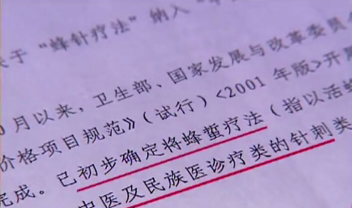 关于“蜂针疗法”纳入“
月以来，卫生部、国家发展与改革委员
价格项目规范》（试行）<2001年版>开
完成。已初步确定将蜂蜇疗法（指以活蜂
中医及民族医诊疗类的针刺类